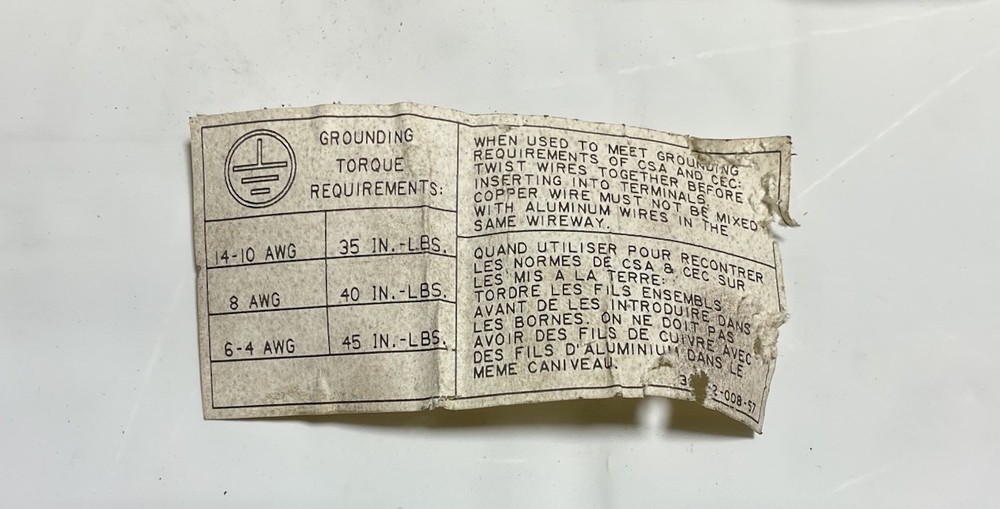 GROUNDING
TORQUE
REQUIREMENTS:
14-10 AWG 35 IN.-LBS.
8 AWG 40 IN.-LBS.
6-4 AWG 45 IN.-LBS.
WHEN USED TO MEET GROUNDING
REQUIREMENTS OF CSA AND CEC:
TWIST WIRES TOGETHER BEFORE
INSERTING INTO TERMINALS.
COPPER WIRE MUST NOT BE MIXED
WITH ALUMINUM WIRES IN THE
SAME WIREWAY.
QUAND UTILISER POUR RECONTRER
LES NORMES DE CSA & CEC SUR
LES MIS A LA TERRE:
TORDRE LES FILS ENSEMBLS
AVANT DE LES INTRODUIRE DANS
LES BORNES. ON NE DOIT PAS
AVOIR DES FILS DE CUIVRE AVEC
DES FILS D'ALUMINIUM DANS LE
MEME CANIVEAU.
2-008-57